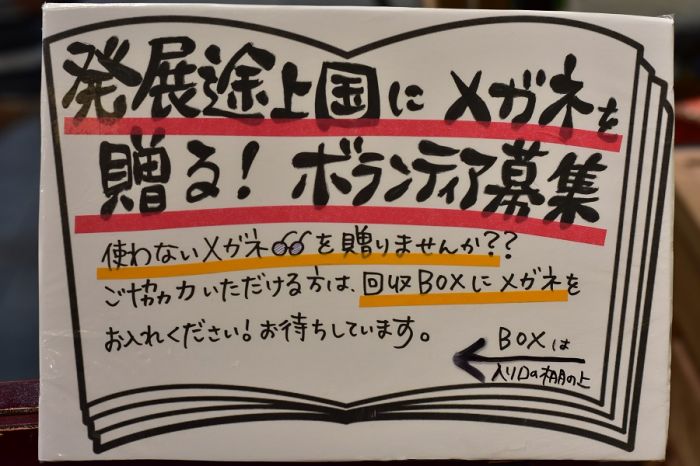 発展途上国に メガネを
贈る! ボランティア募集
使わないメガネを贈りませんか??
ご協力いただける方は、回収BOXにメガネを
お入れください!お待ちしています。
BOXは
入り口の棚の上